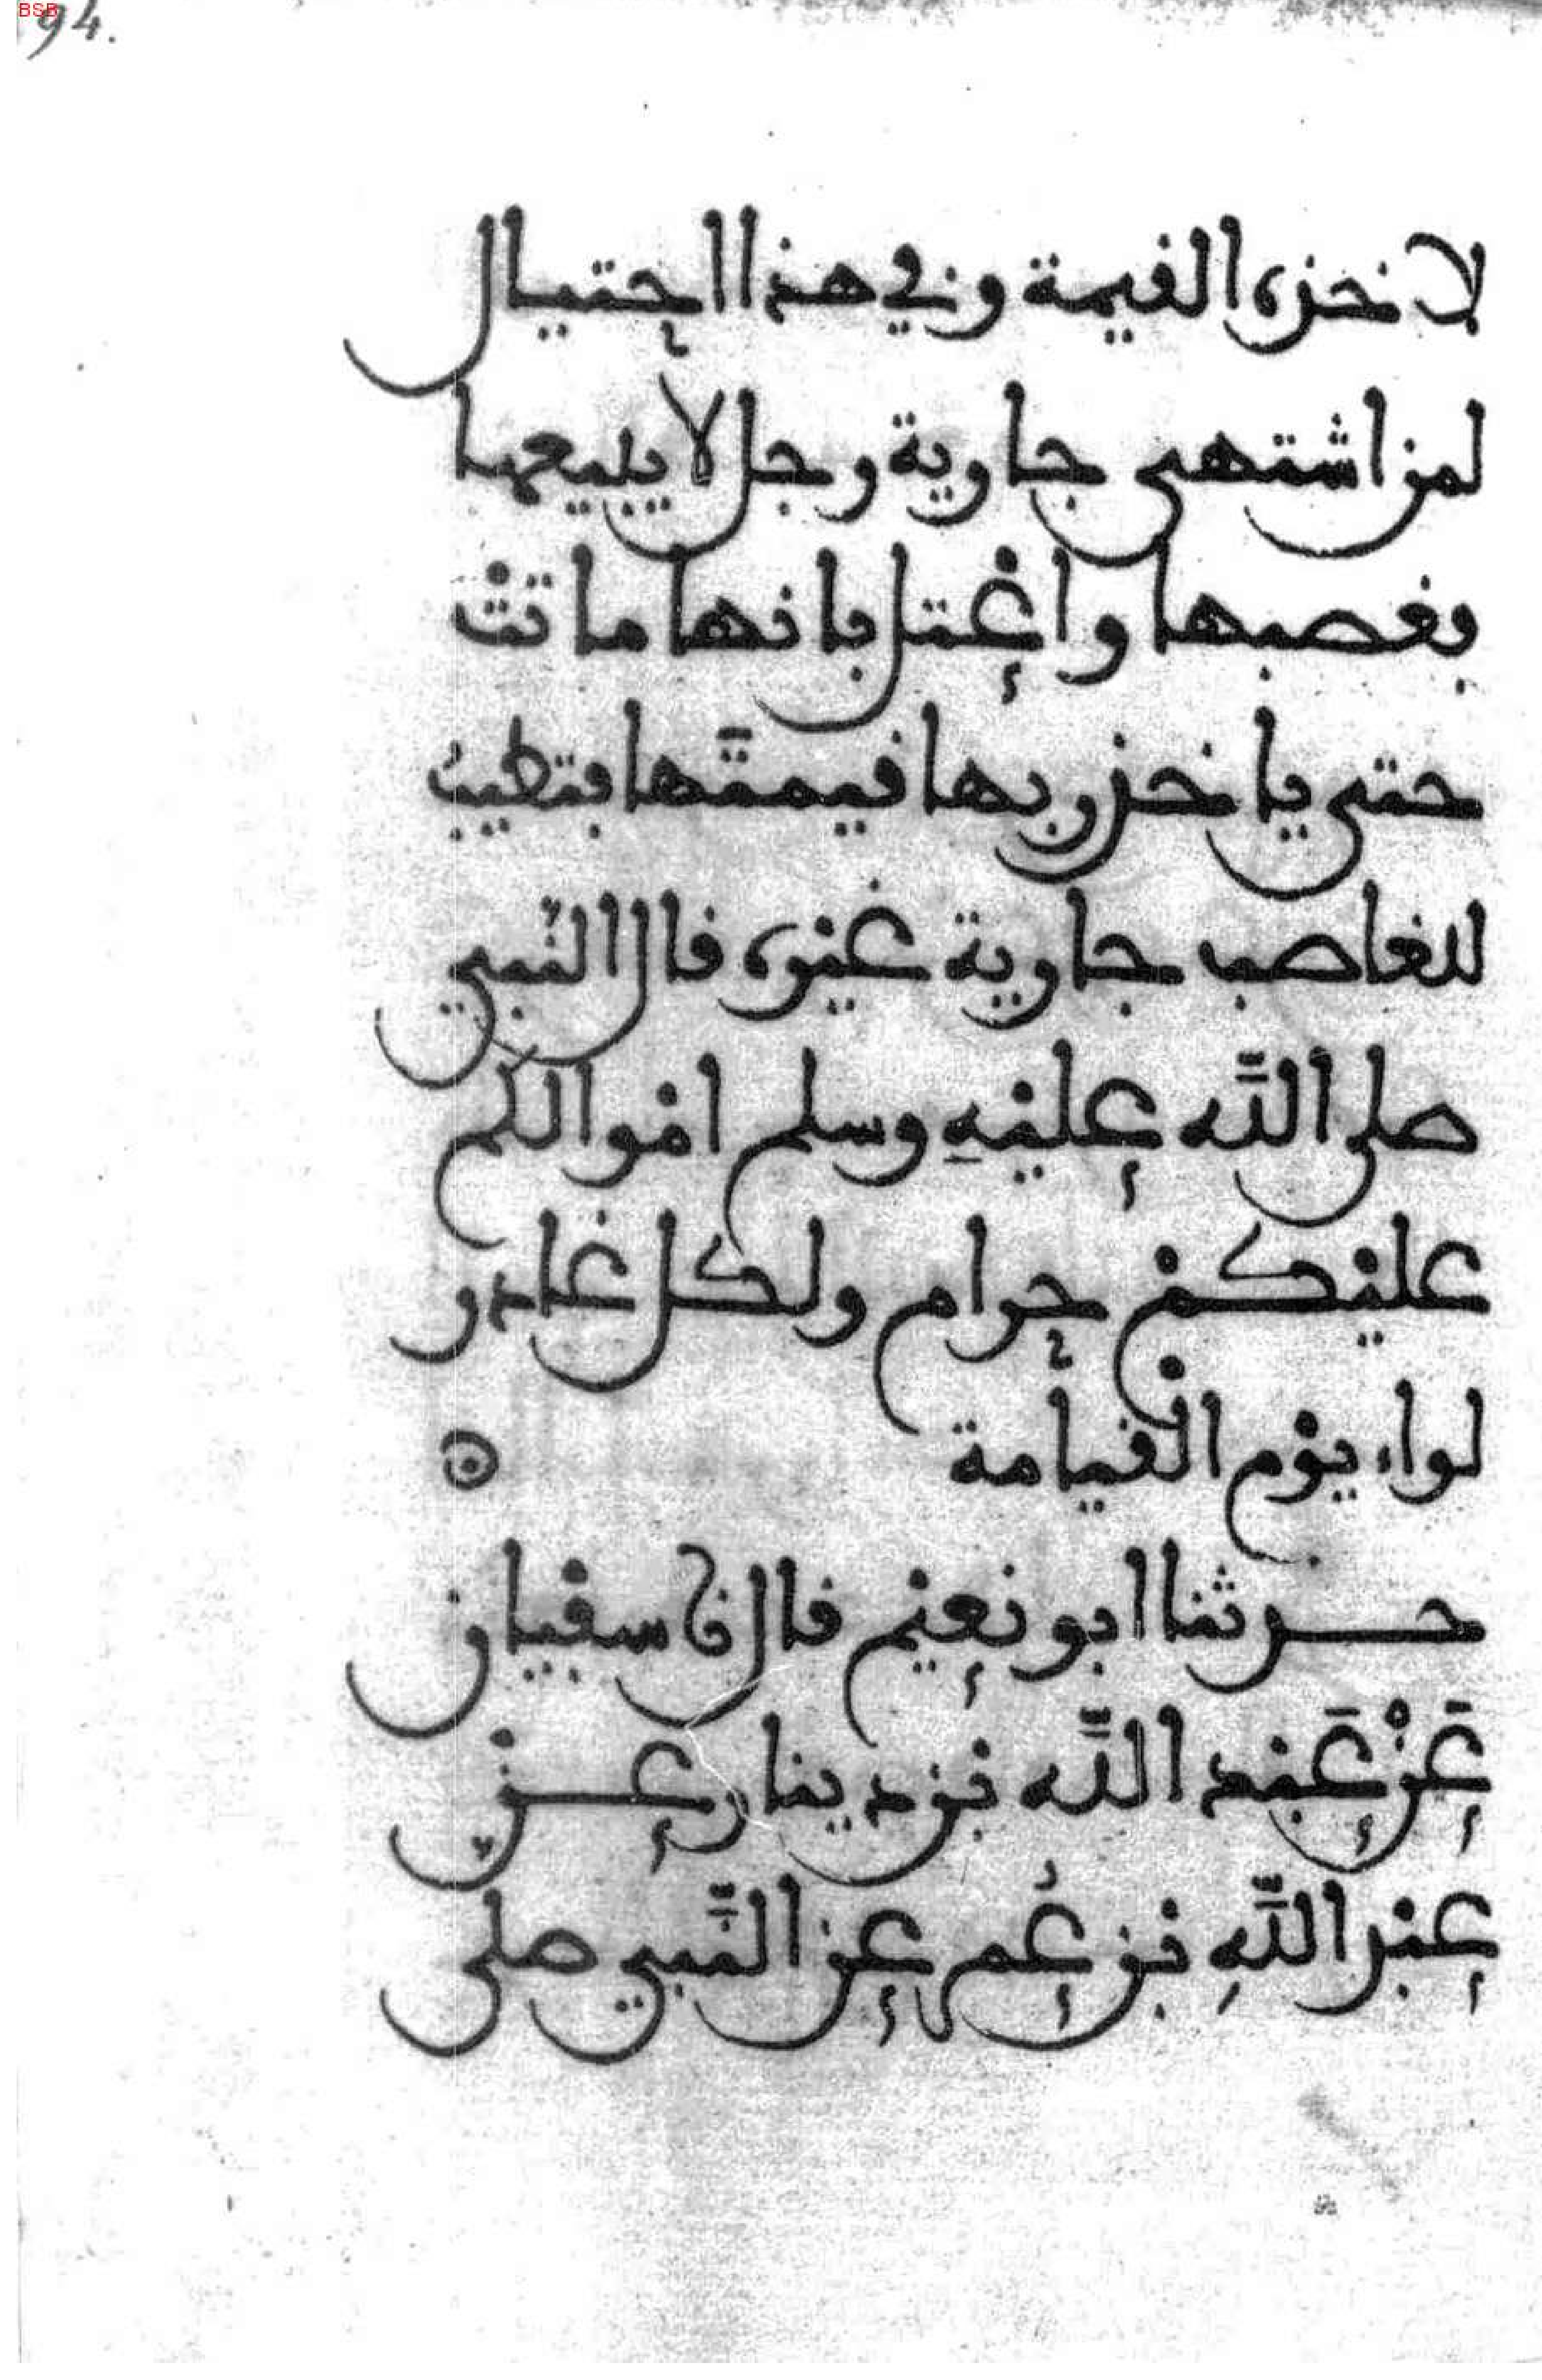 94.
لاخذه القيمة وفي هذا احتيال
لمن اشتهى جارية رجل لا يبيعها
فغصبها واعتل بانها ماتت
حتى ياخذ ربها قيمتها فتطيب
للغاصب جارية غيره قال النبي
صلى الله عليه وسلم اموالكم
عليكم حرام ولكل غادر
لواء يوم القيامة
حدثنا ابو نعيم قال نا سفيان
عن عبد الله بن دينار عن
عبد الله بن عمر عن النبي صلى